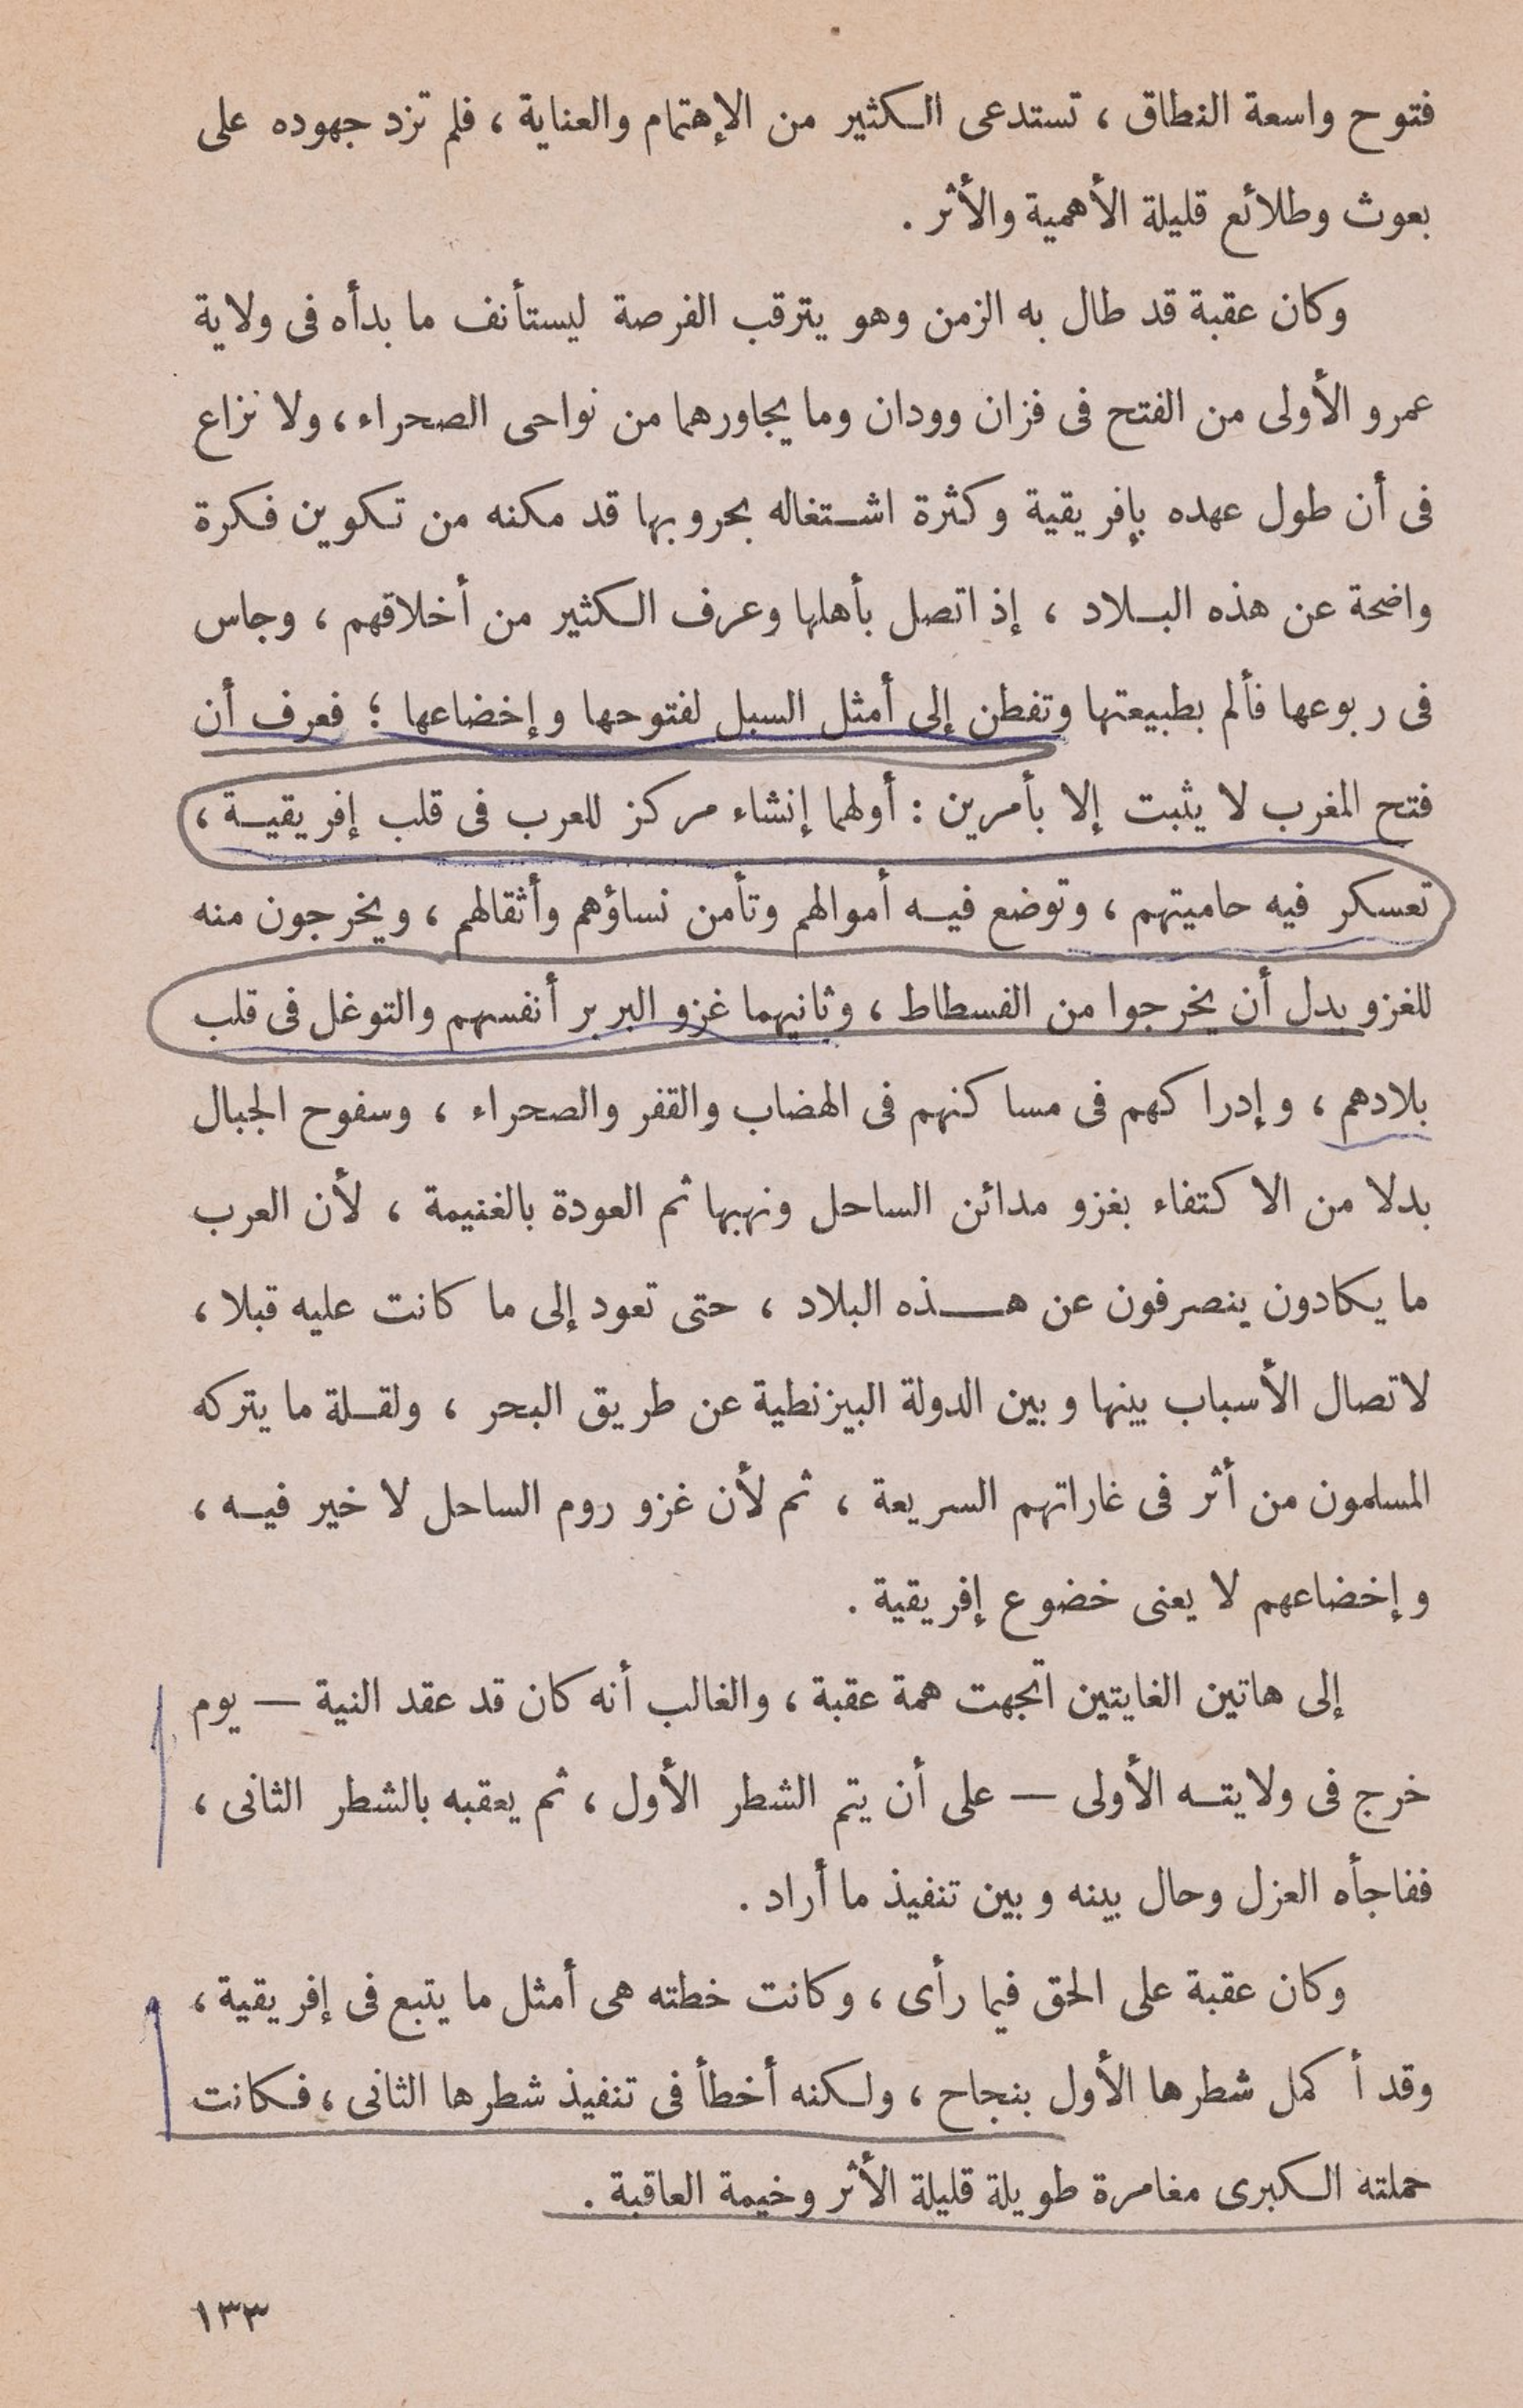 فتوح واسعة النطاق ، تستدعى الكثير من الإهتمام والعناية ، فلم تزد جهوده على
بعوث وطلائع قليلة الأهمية والأثر .
وكان عقبة قد طال به الزمن وهو يترقب الفرصة ليستأنف ما بدأه فى ولاية
عمرو الأولى من الفتح فى فزان وودان وما يجاورهما من نواحى الصحراء ، ولا نزاع
فى أن طول عهده بإفريقية وكثرة اشتغاله بحروبها قد مكنه من تكوين فكرة
واضحة عن هذه البلاد ، إذ اتصل بأهلها وعرف الكثير من أخلاقهم ، وجاس
فى ربوعها فألم بطبيعتها وتفطن إلى أمثل السبل لفتوحها وإخضاعها ؛ فعرف أن
فتح المغرب لا يثبت إلا بأمرين : أولهما إنشاء مركز للعرب فى قلب إفريقية ،
تعسكر فيه حاميتهم ، وتوضع فيه أموالهم وتأمن نساؤهم وأثقالهم ، ويخرجون منه
للغزو بدل أن يخرجوا من الفسطاط ، وثانيهما غزو البربر أنفسهم والتوغل فى قلب
بلادهم ، وإدراكهم فى مساكنهم فى الهضاب والقفر والصحراء ، وسفوح الجبال
بدلا من الاكتفاء بغزو مدائن الساحل ونهبها ثم العودة بالغنيمة ، لأن العرب
ما يكادون ينصرفون عن هذه البلاد ، حتى تعود إلى ما كانت عليه قبلا ،
لاتصال الأسباب بينها وبين الدولة البيزنطية عن طريق البحر ، ولقلة ما يتركه
المسلمون من أثر فى غاراتهم السريعة ، ثم لأن غزو روم الساحل لا خير فيه ،
وإخضاعهم لا يعنى خضوع إفريقية .
إلى هاتين الغايتين اتجهت همة عقبة ، والغالب أنه كان قد عقد النية — يوم
خرج فى ولايته الأولى — على أن يتم الشطر الأول ، ثم يعقبه بالشطر الثانى ،
ففاجأه العزل وحال بينه وبين تنفيذ ما أراد .
وكان عقبة على الحق فيما رأى ، وكانت خطته هى أمثل ما يتبع فى إفريقية ،
وقد أكمل شطرها الأول بنجاح ، ولكنه أخطأ فى تنفيذ شطرها الثانى ، فكانت
حملته الكبرى مغامرة طويلة قليلة الأثر وخيمة العاقبة .
١٣٣